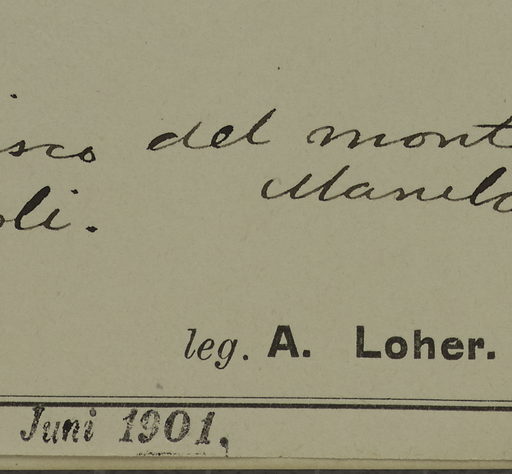 isco del mont
oli. Manila
leg. A. Loher.
Juni 1901.